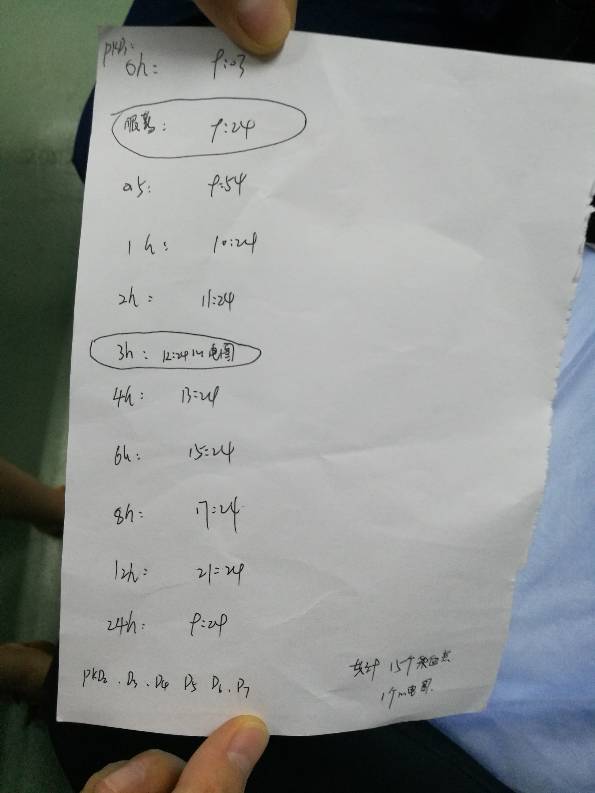 PKD1:
0h: 9:03
服药: 9:24
0.5: 9:54
1h: 10:24
2h: 11:24
3h: 12:24 心电图
4h: 13:24
6h: 15:24
8h: 17:24
12h: 21:24
24h: 9:24
PKD2、D3、D4 D5 D6、D7
共计 15个采血点
1个心电图.